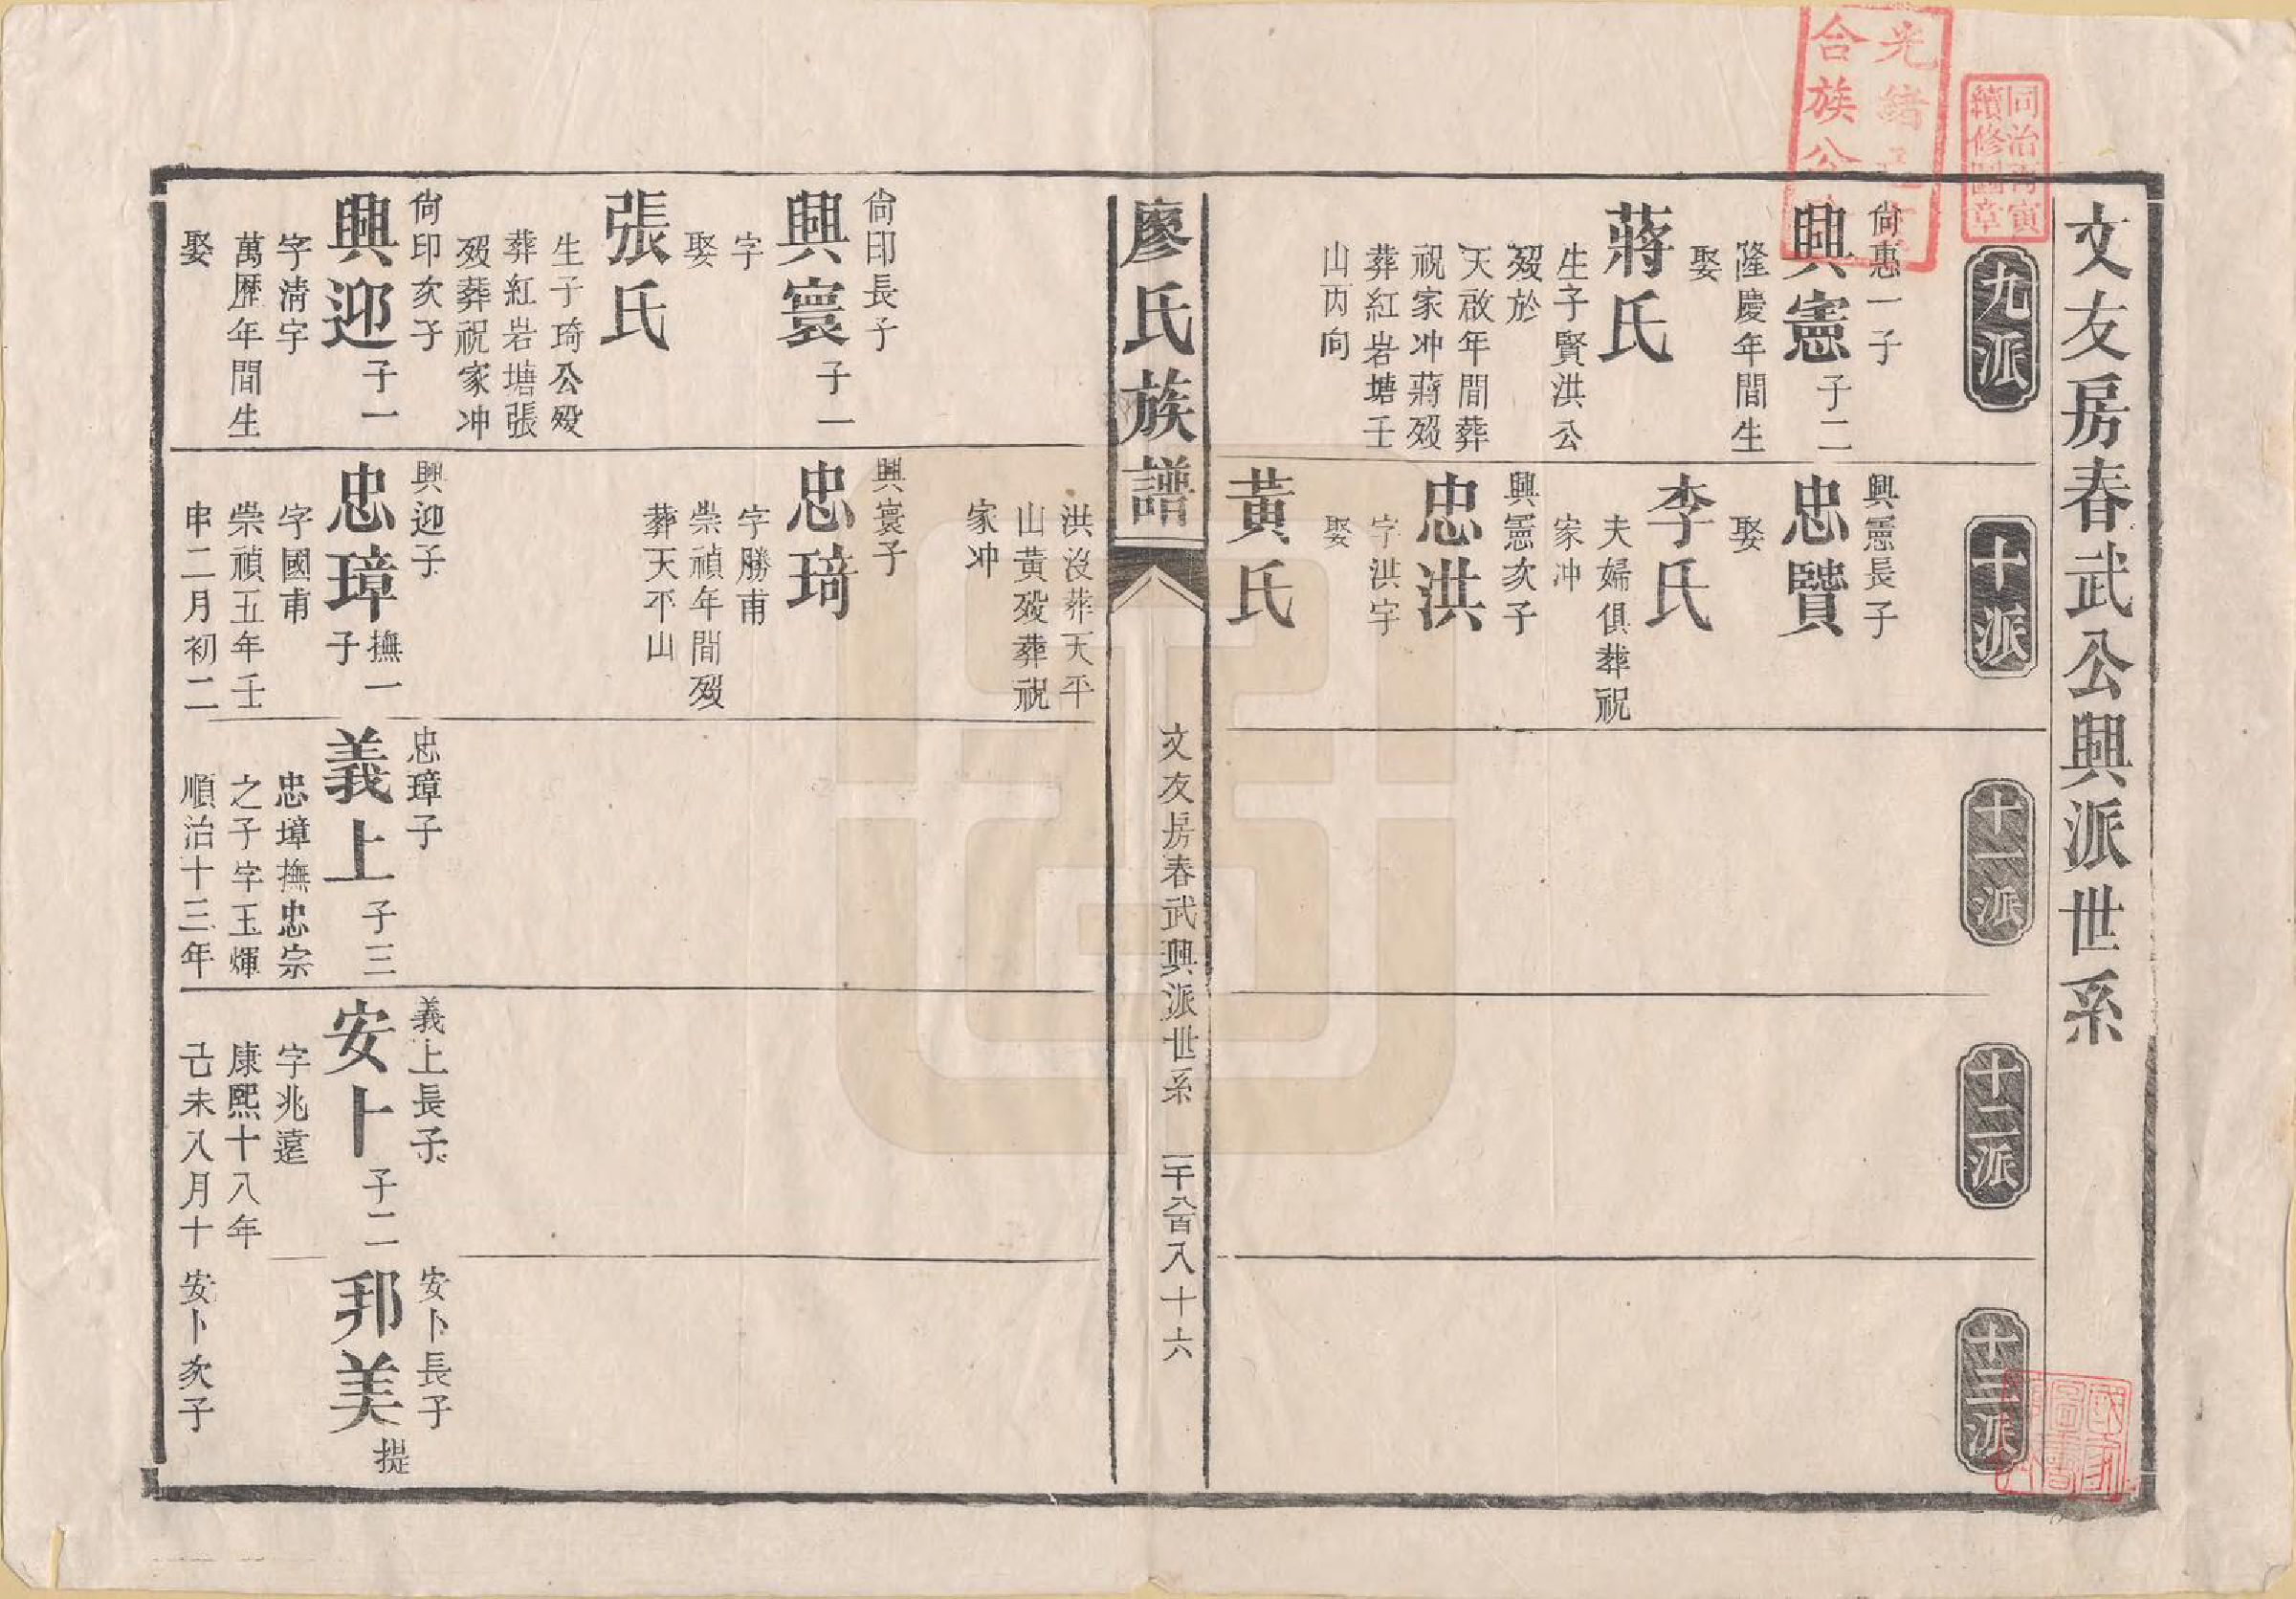 文友房春武公興派世系
九派
十派
十一派
十二派
十三派
同治丙寅
續修圖章
光緒
合族公
尙惠一子
興憲 子二
隆慶年間生
娶
蔣氏
生子賢洪公
殁於
天啟年間葬
祝家冲蔣殁
葬紅岩塘壬
山丙向
興憲長子
忠賢
娶
李氏
夫婦俱葬祝
家冲
興憲次子
忠洪
字洪宇
娶
黃氏
廖氏族譜
文友房春武興派世系
八百八十六
洪沒葬天平
山黃殁葬祝
家冲
尙印長子
興寰 子一
字
娶
張氏
生子琦公殁
葬紅岩塘張
殁葬祝家冲
興寰子
忠琦
字勝甫
崇禎年間殁
葬天平山
尙印次子
興迎 子一
字清宇
萬歷年間生
娶
興迎子
忠璋 撫一
子
字國甫
崇禎五年壬
申二月初二
忠璋子
義上 子三
忠璋撫忠宗
之子字玉煇
順治十三年
義上長子
安卜 子二
字兆遠
康熙十八年
己未八月十
安卜長子
邦美
提
安卜次子